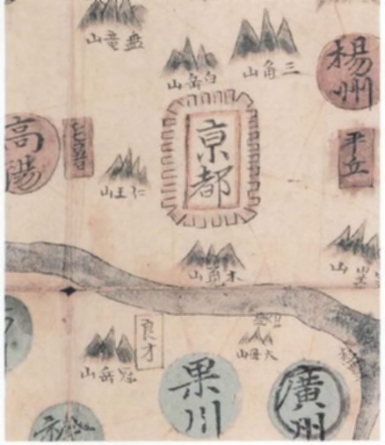 三角山
白岳山
楊州
亰都
高陽
平丘
仁王山
木覓山
良才
冠岳山
果川
廣州
大母山